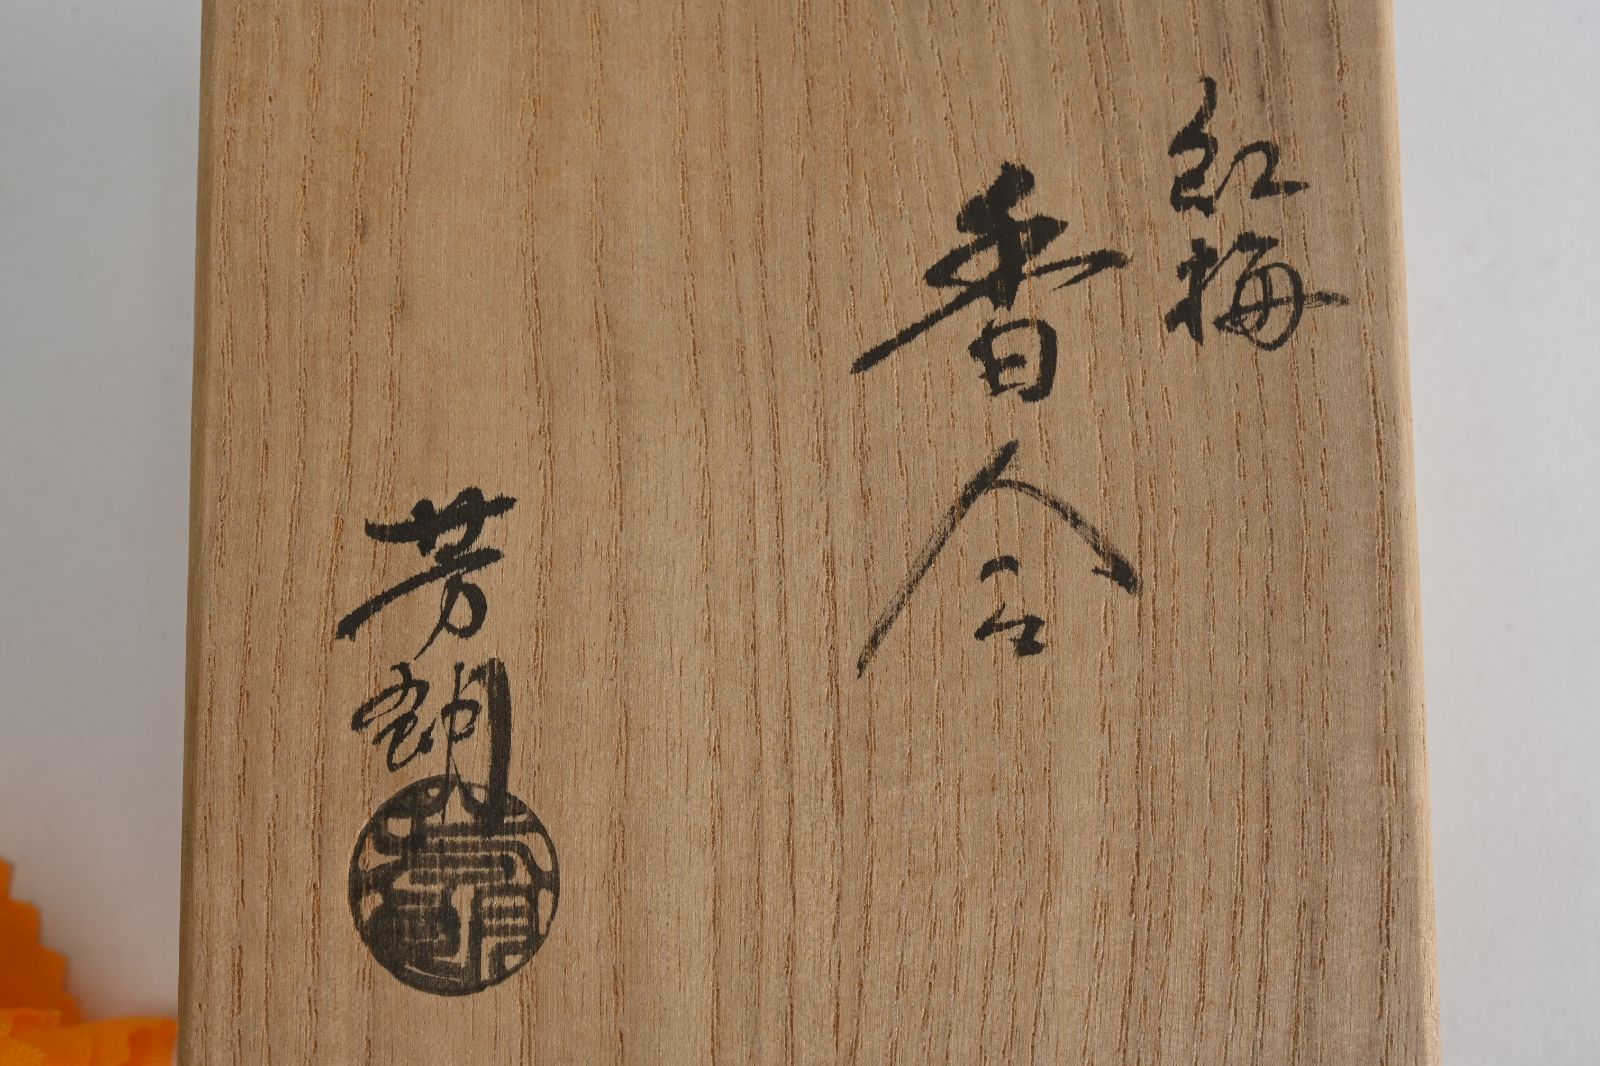 紅梅
香合
芳